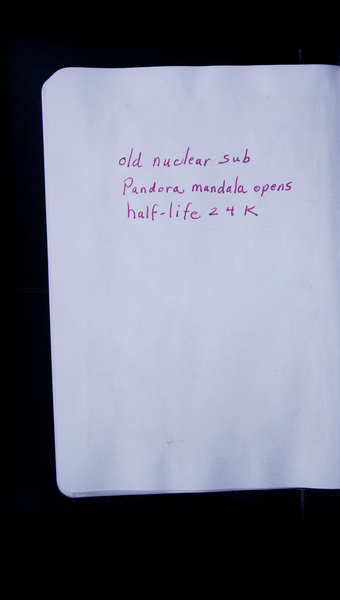 old nuclear sub
Pandora mandala opens
half-life 24K